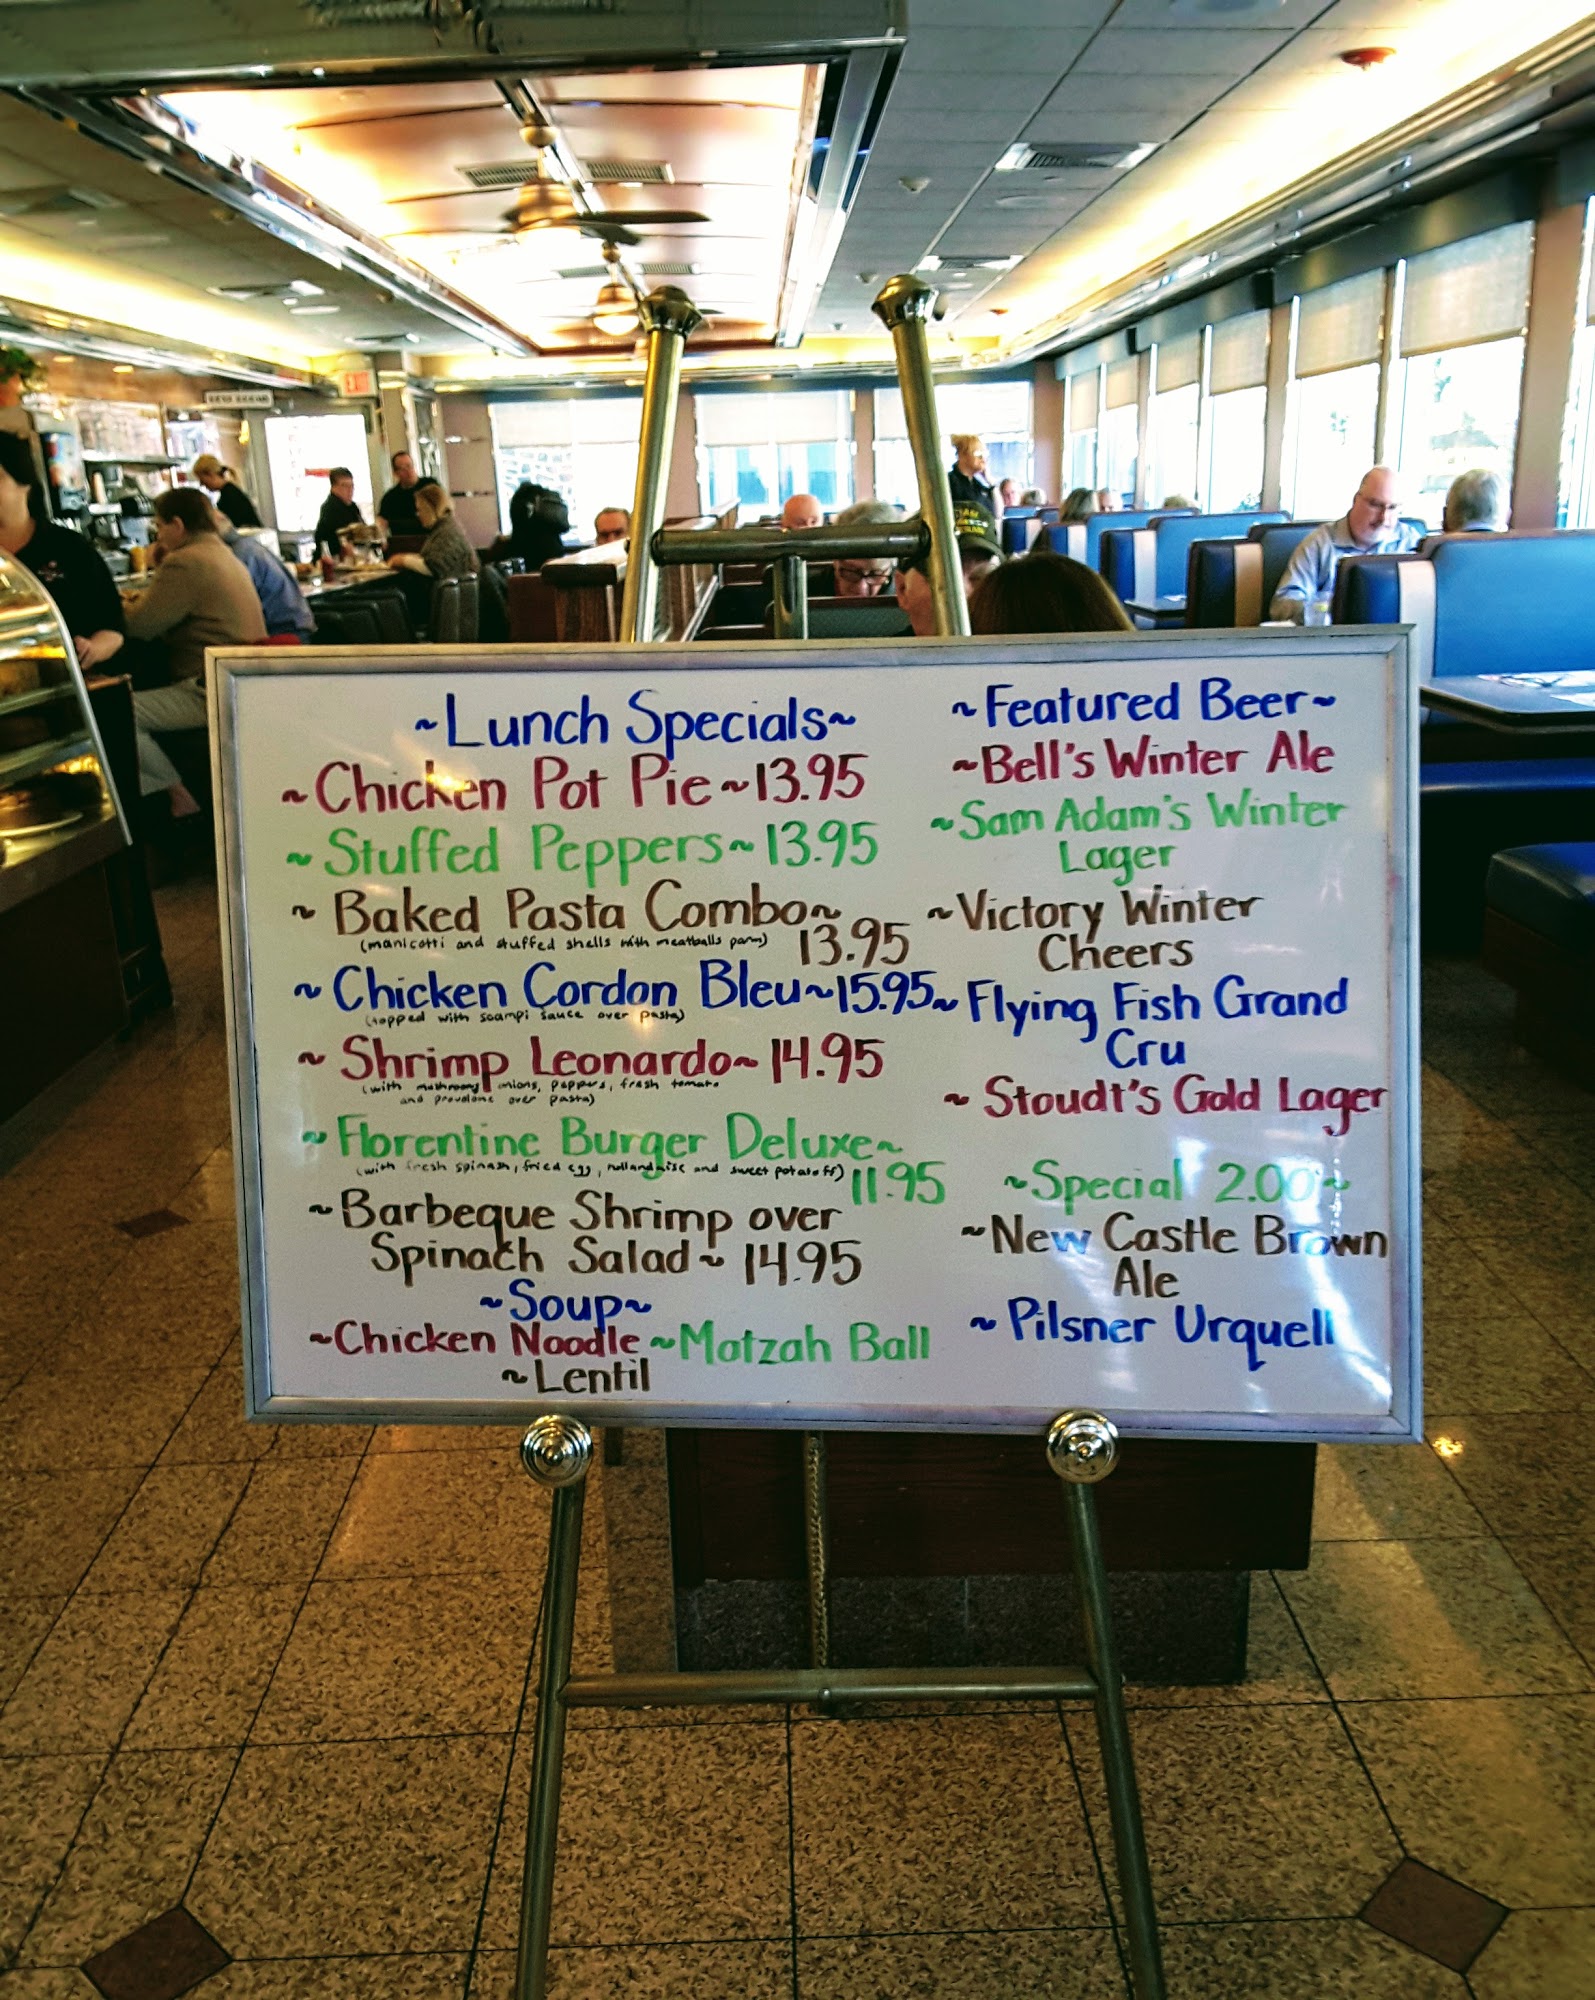 ~Lunch Specials~
~Chicken Pot Pie~13.95
~Stuffed Peppers~13.95
~Baked Pasta Combo~
(manicotti and stuffed shells with meatballs parm) 13.95
~Chicken Cordon Bleu~15.95
(topped with scampi sauce over pasta)
~Shrimp Leonardo~14.95
(with onions, peppers, fresh tomato
and provolone over pasta)
~Florentine Burger Deluxe~
(with fresh spinash, fried egg, and sweet potato ff) 11.95
~Barbeque Shrimp over
Spinach Salad~14.95
~Soup~
~Chicken Noodle ~Matzah Ball
~Lentil
~Featured Beer~
~Bell's Winter Ale
~Sam Adam's Winter
Lager
~Victory Winter
Cheers
~Flying Fish Grand
Cru
~Stoudt's Gold Lager
~Special 2.00~
~New Castle Brown
Ale
~Pilsner Urquell
EXIT